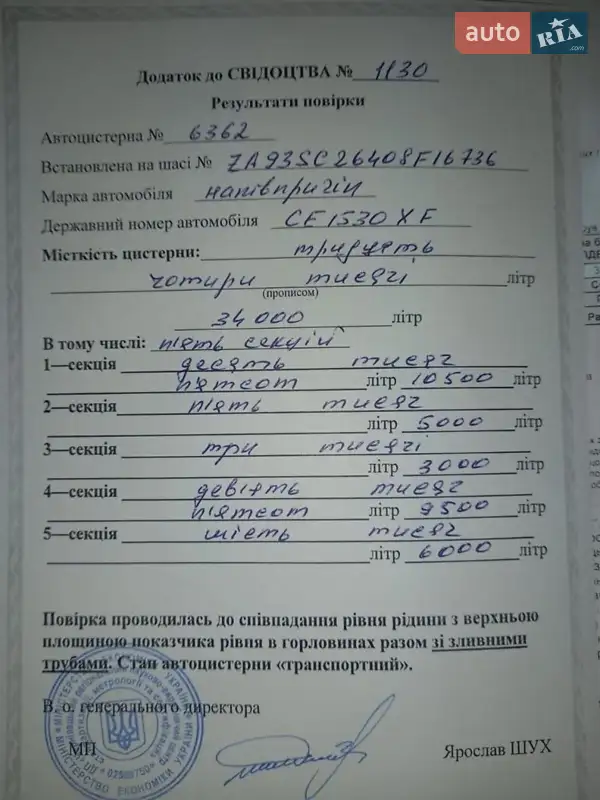 auto RIA .com
Додаток до СВІДОЦТВА № 1130
Результати повірки
Автоцистерна № 6362
Встановлена на шасі № ZA93SC26408F16736
Марка автомобіля напівпричіп
Державний номер автомобіля СЕ1530ХF
Місткість цистерни: тридцять
чотири тисячі літр
(прописом)
34000 літр
В тому числі: п'ять секцій
1—секція десять тисяч
п'ятсот літр 10500 літр
2—секція п'ять тисяч
літр 5000 літр
3—секція три тисячі
літр 3000 літр
4—секція дев'ять тисяч
п'ятсот літр 9500 літр
5—секція шість тисяч
літр 6000 літр
Повірка проводилась до співпадання рівня рідини з верхньою
площиною показчика рівня в горловинах разом зі зливними
трубами. Стан автоцистерни «транспортний».
В. о. генерального директора
МП
Ярослав ШУХ
МІНІСТЕРСТВО ЕКОНОМІКИ УКРАЇНИ